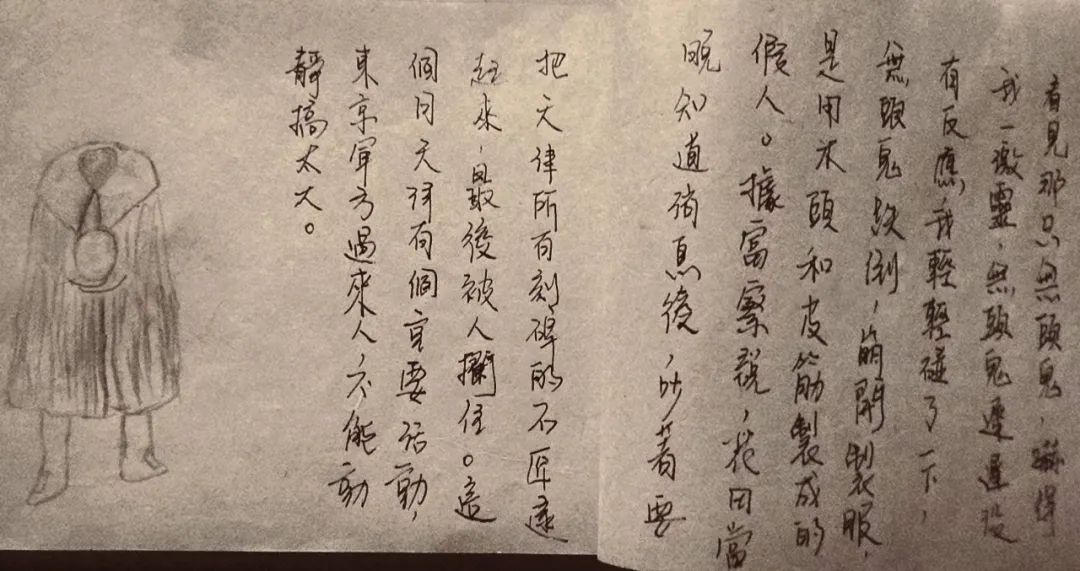 看見那只無頭鬼，嚇得
我一激靈，無頭鬼遲遲没
有反應，我輕輕碰了一下，
無頭鬼就倒，崩開製服，
是用木頭和皮筋製成的
假人。據富察説，花田當
晚知道消息後，吵着要
把天律所有刻碑的石匠逮
起來，最後被人攔住。這
個月天津有個重要活動，
東京軍方過來人，不能動
靜搞太大。